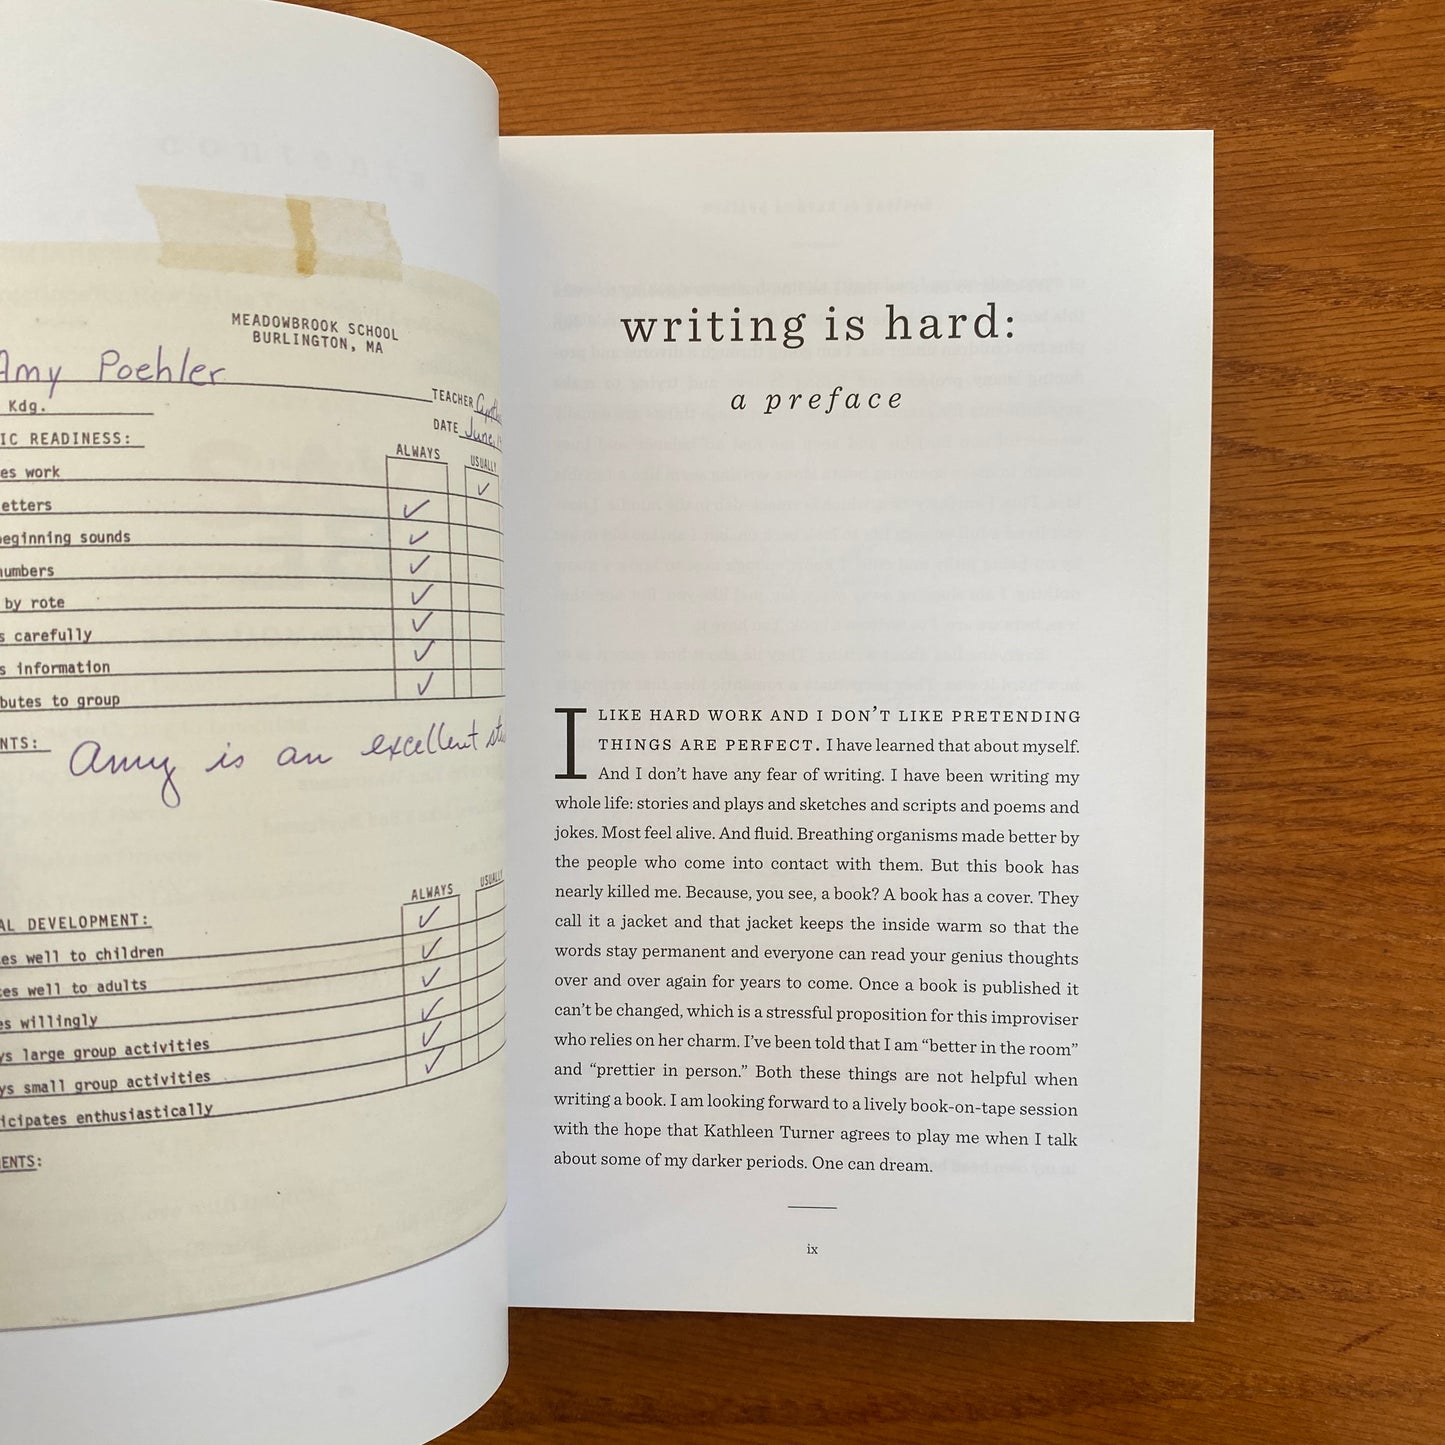 MEADOWBROOK SCHOOL
BURLINGTON, MA
Amy Poehler
Kdg.
TEACHER
DATE June
IC READINESS:
ALWAYS
USUALLY
es work
etters
beginning sounds
numbers
by rote
s carefully
s information
butes to group
NTS: Amy is an excellent
ALWAYS
USUALLY
AL DEVELOPMENT:
es well to children
tes well to adults
es willingly
ys large group activities
ys small group activities
icipates enthusiastically
ENTS:
writing is hard:
a preface
I LIKE HARD WORK AND I DON’T LIKE PRETENDING
THINGS ARE PERFECT. I have learned that about myself.
And I don’t have any fear of writing. I have been writing my
whole life: stories and plays and sketches and scripts and poems and
jokes. Most feel alive. And fluid. Breathing organisms made better by
the people who come into contact with them. But this book has
nearly killed me. Because, you see, a book? A book has a cover. They
call it a jacket and that jacket keeps the inside warm so that the
words stay permanent and everyone can read your genius thoughts
over and over again for years to come. Once a book is published it
can’t be changed, which is a stressful proposition for this improviser
who relies on her charm. I’ve been told that I am “better in the room”
and “prettier in person.” Both these things are not helpful when
writing a book. I am looking forward to a lively book-on-tape session
with the hope that Kathleen Turner agrees to play me when I talk
about some of my darker periods. One can dream.
ix